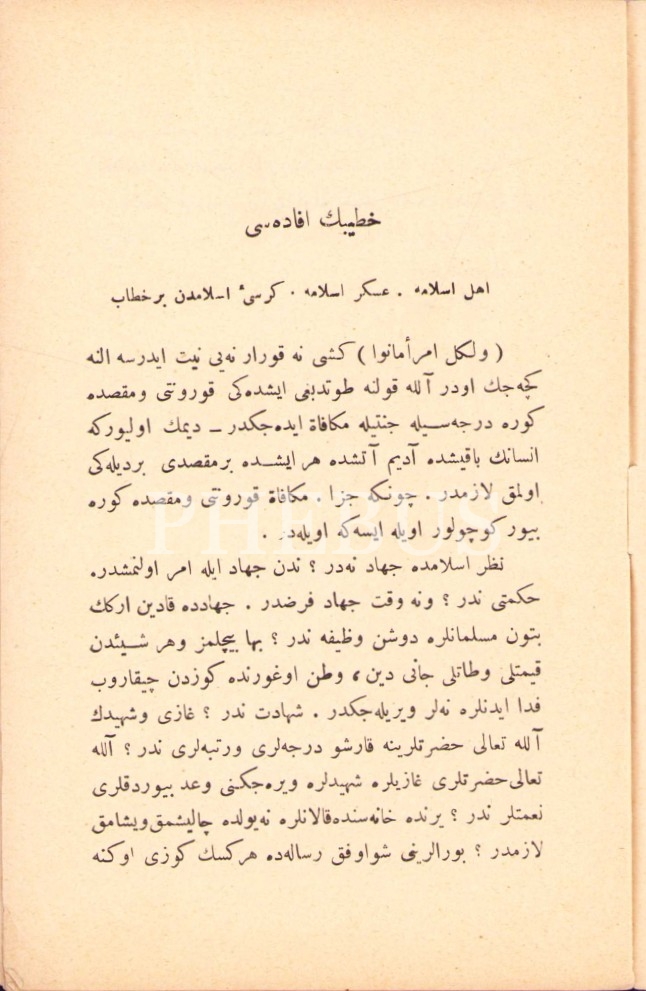 خطيبك افاده‌سی
اهل اسلامه . عسكر اسلامه . كرسیٔ اسلامدن بر خطاب
( ولكل امرأمانوا ) كشی نه قورار نه‌یی نيت ايدرسه النه
كچه‌جك اودر آلله قولنه طوتديغی ايشده‌كی قورونتی ومقصده
كوره درجه‌سيله جنتيله مكافاة ايده‌جكدر ـ ديمك اوليوركه
انسانك باقيشده آديم آتشده هر ايشده بر مقصدی برديله‌كی
اولمق لازمدر . چونكه جزا . مكافاة قورونتی ومقصده كوره
بيور كوچولور اويله ايسه‌كه اويله‌در .
نظر اسلامده جهاد نه‌در ؟ ندن جهاد ايله امر اولنمشدر.
حكمتی ندر ؟ ونه وقت جهاد فرضدر . جهادده قادين اركك
بتون مسلمانلره دوشن وظيفه ندر ؟ بها بيچلمز وهر شيئدن
قيمتلی وطاتلی جانی دين ، وطن اوغورنده كوزدن چيقاروب
فدا ايدنلره نه‌لر ويريله‌جكدر . شهادت ندر ؟ غازی وشهيدك
آلله تعالی حضرتلرينه قارشو درجه‌لری ورتبه‌لری ندر ؟ آلله
تعالی حضرتلری غازيلره شهيدلره ويره‌جكنی وعد بيوردقلری
نعمتلر ندر ؟ يرنده خانه‌سنده قالانلره نه‌يولده چاليشمق ويشامق
لازمدر ؟ بورالرينی شو اوفق رساله‌ده هركسك كوزی اوكنه
PHEBUS